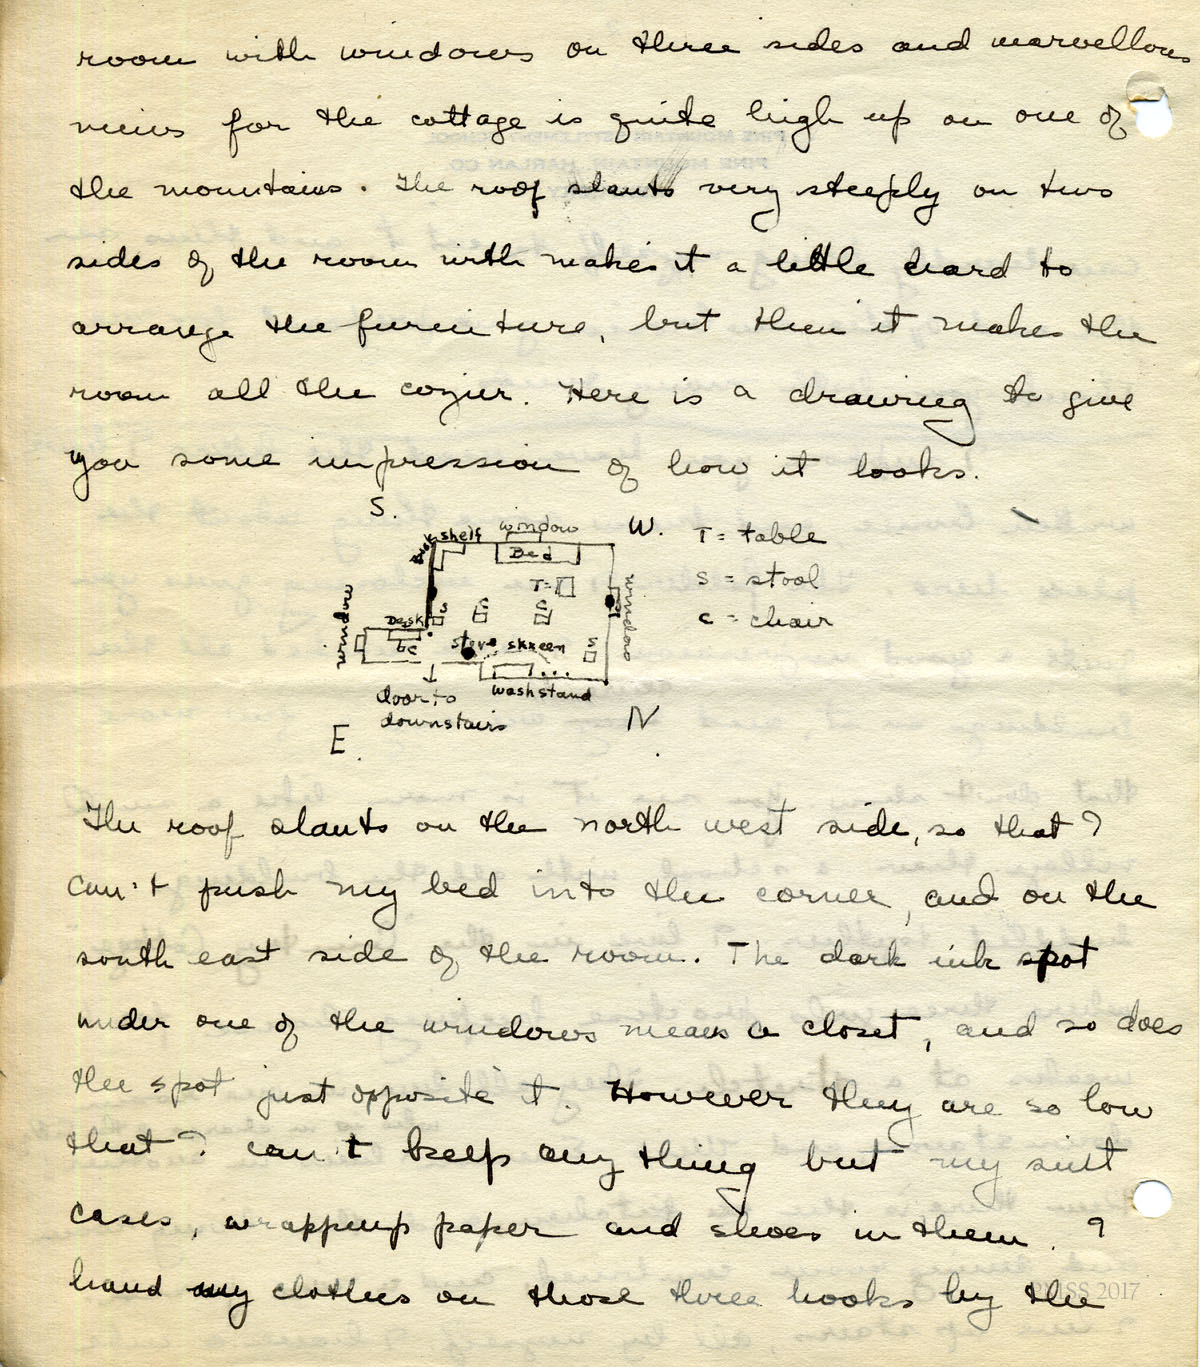 room with windows on three sides and marvellous
views for the cottage is quite high up on one of
the mountains. The roof slants very steeply on two
sides of the room with makes it a little hard to
arrange the furniture, but then it makes the
room all the cozier. Here is a drawing to give
you some impression of how it looks.
S.
Book shelf window W. T = table
Bed
T = S = stool
window
S C C C = chair
window Desk
C stove skreen S
washstand
door to
downstairs N
E.
The roof slants on the north west side, so that I
can't push my bed into the corner, and on the
south east side of the room. The dark ink spot
under one of the windows means a closet, and so does
the spot just opposite it. However they are so low
that I can't keep any thing but my suit
cases, wrapping paper and shoes in them. I
hand my clothes on those three hooks by the
PMSS 2017